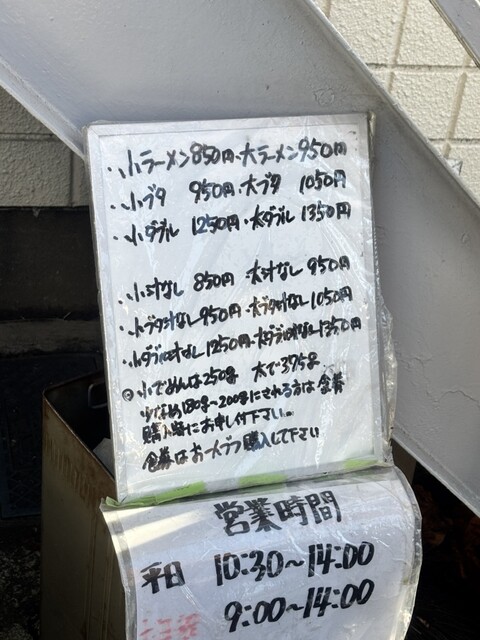 ・小ラーメン850円・大ラーメン950円
・小ブタ 950円・大ブタ 1050円
・小ダブル 1250円・大ダブル1350円
・小汁なし 850円 大汁なし 950円
・小ブタ汁なし950円・大ブタ汁なし1050円
・小ダブル汁なし1250円・大ダブル汁なし1350円
◎小でめんは250g 大で375g
少なめ180g〜200gにされる方は食券
購入時にお申し付下さい。
食券はお一人づつ購入して下さい
営業時間
平日 10:30〜14:00
9:00〜14:00